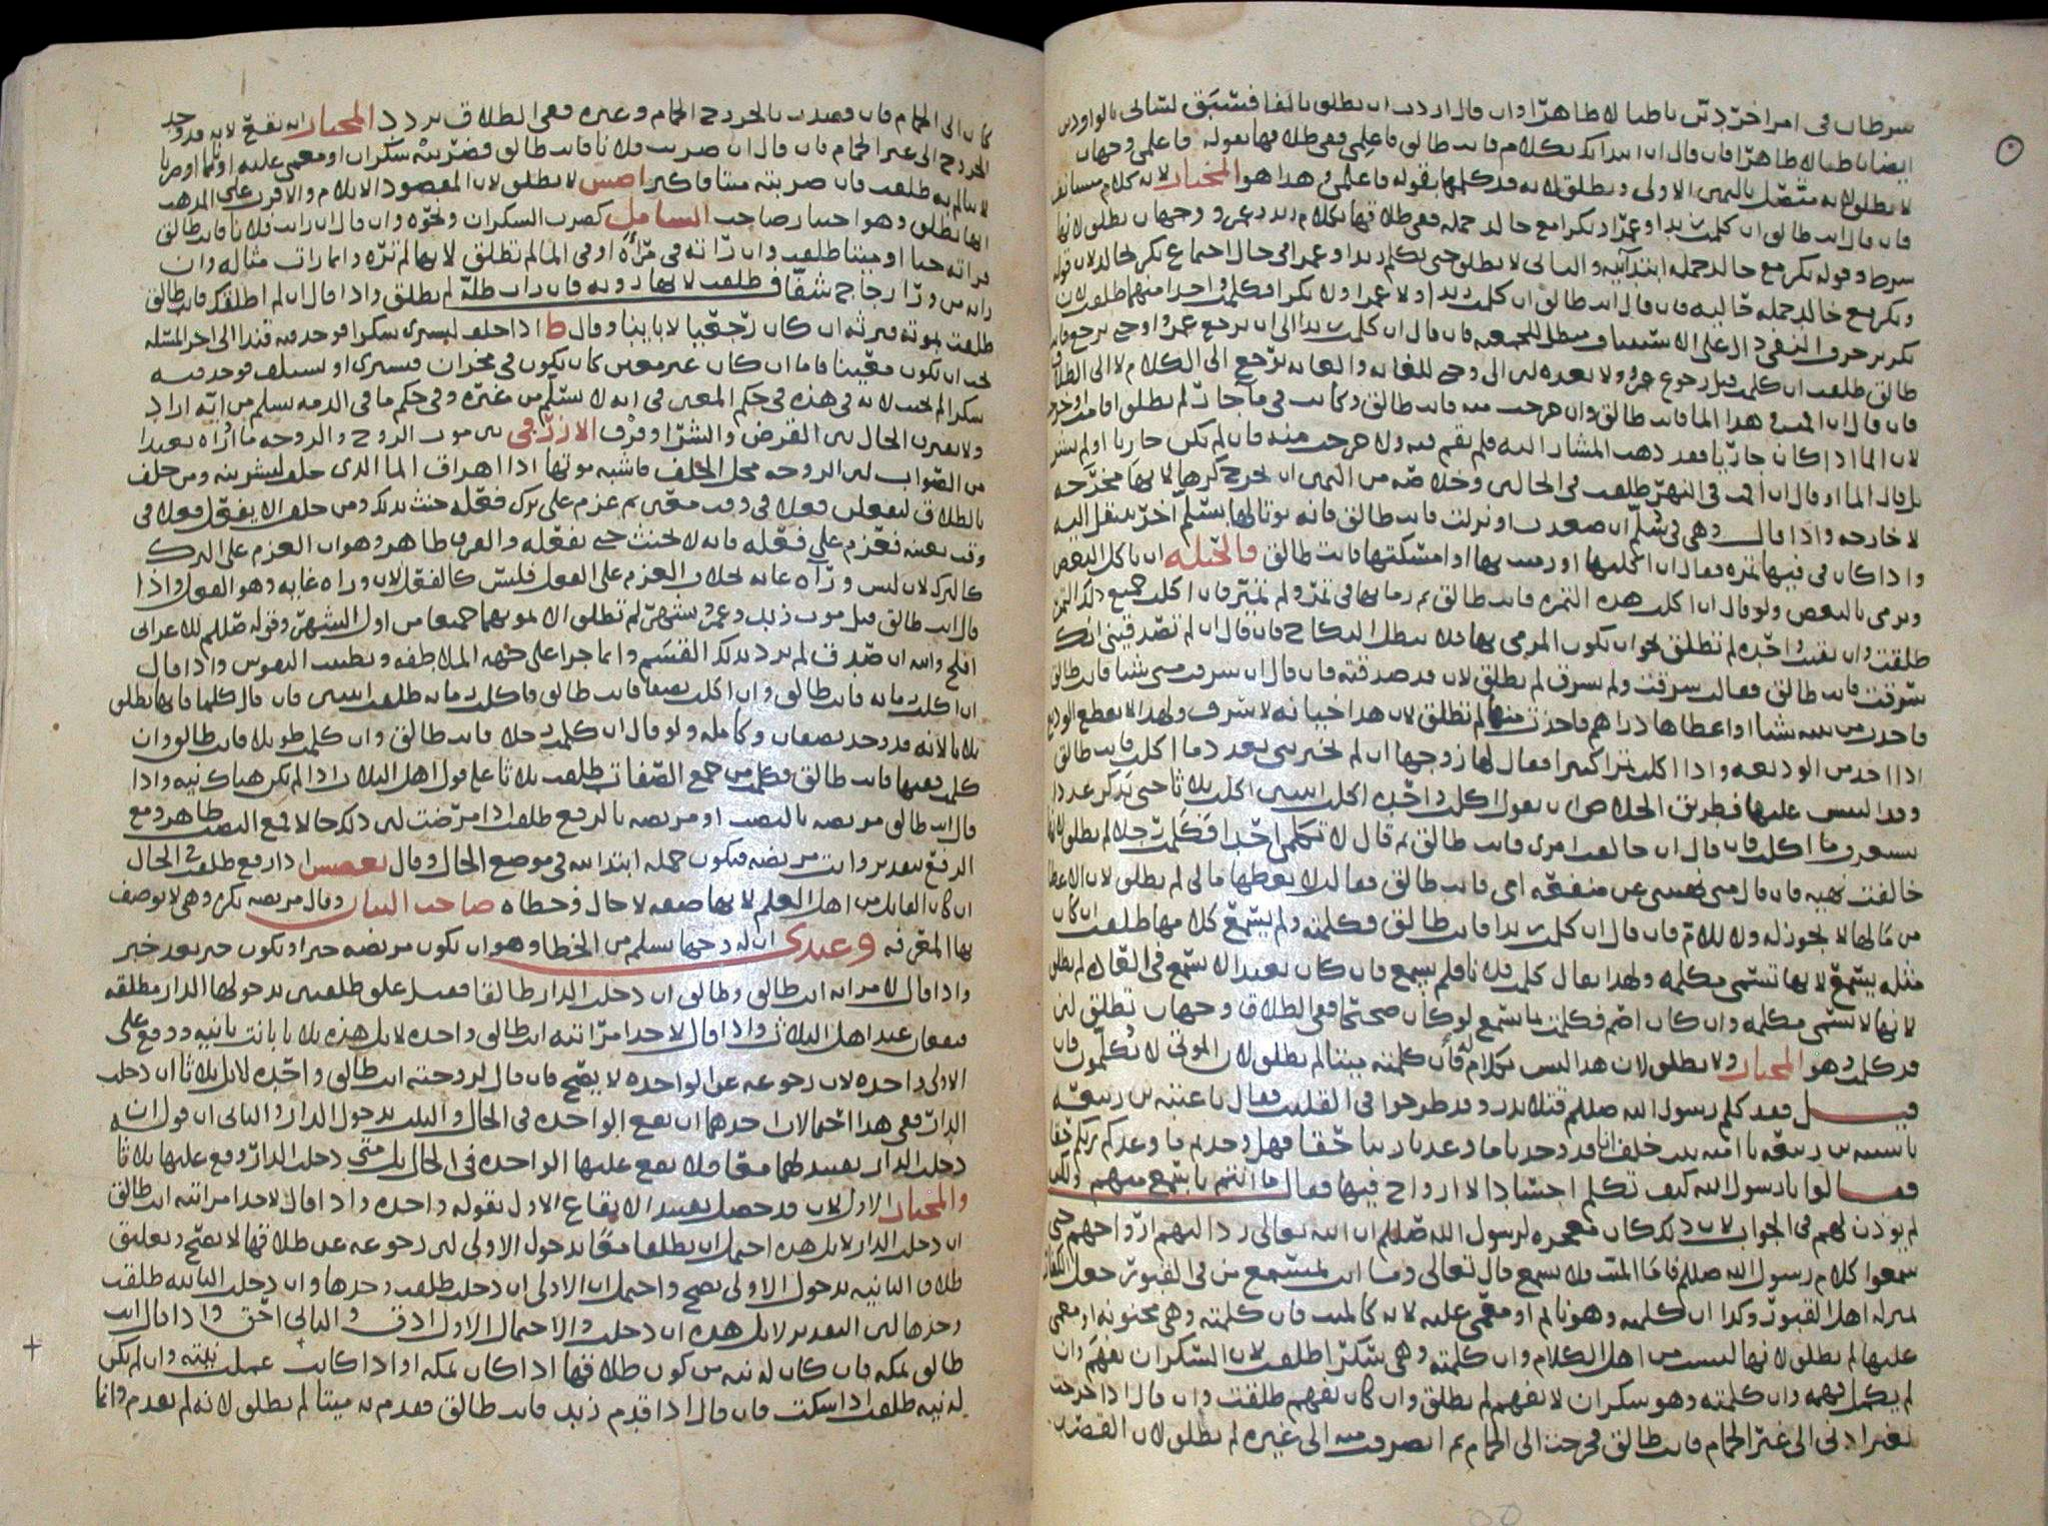 شرطان في امر اخر دين باطنا لا ظاهرا وان قال اردت ان تطلق بالفا فسبق لساني بالواو دين
ايضا باطنا لا ظاهرا فان قال ان ابتدأتك بكلام فانت طالق فاعلمي ففي طلاقها بقوله فاعلمي وجهان
لا تطلق لانه متصل باليمين الاولى وتطلق لانه قد كلمها بقوله فاعلمي وهذا هو المختار لانه كلام مستانف
فان قال انت طالق ان كلمت زيدا وعمرا وبكر مع خالد جملة ففي طلاقها بكلام زيد وعمرو وجهان تطلق لانها
شرط وقوله بكر مع خالد جملة ابتدائية والثاني لا تطلق حتى تكلم زيدا وعمرا في حال اجتماع بكر بخالد لان قوله
وبكر مع خالد جملة حالية فان قال انت طالق ان كلمت زيدا ولا عمرا ولا بكرا فكلمت واحدا منهم طلقت لان
تكرير حرف النفي دال على الاستيناف ومبطل للجمعية فان قال ان كلمت زيدا الى ان يرجع عمرو او حتى يرجع فانت
طالق طلقت ان كلمت قبل رجوع عمرو ولا بعده لان الى وحتى للغاية والغاية ترجع الى الكلام لا الى الطلاق
فان قال ان اقمت في هذا الما فانت طالق وان خرجت منه فانت طالق وكانت في ماء جار لم تطلق اقامت او خرجت
لان الما اذا كان جاريا فقد ذهب المشار اليه فلم تقم فيه ولا خرجت منه فان لم يكن جاريا او لم يشر
بل قال الما او قال ان اقمت في النهر طلقت في الحالين وخلاصه من اليمين ان تخرج كرها لانها مخرجة
لا خارجة واذا قال وهي في سلم ان صعدت او نزلت فانت طالق فانه يوتا لها بسلم اخر تنتقل اليه
واذا كان في فيها تمرة فقال ان اكلتها او رميت بها او امسكتها فانت طالق فالحيلة ان تاكل البعض
وترمي بالبعض ولو قال ان اكلت هذه التمرة فانت طالق ثم رما بها في تمر ولم تميز فان اكلت جميع ذلك التمر
طلقت وان بقيت واحدة لم تطلق لجواز ان تكون المرمي بها فلا يبطل النكاح فان قال ان لم تصدقيني انك
سرقت فانت طالق فقالت سرقت ولم اسرق لم تطلق لان قد صدقته فان قال ان سرقت مني شيا فانت طالق
فاخذت من بيته شيا او اعطاها دراهم فاخذت منها لم تطلق لان هذا خيانة لا سرق ولهذا لا يقطع المودع
اذا اخذ من الوديعة واذا اكلت تمرا كثيرا فقال لها زوجها ان لم تخبريني بعدد ما اكلت فانت طالق
وقد التبس عليها فطريق الخلاص ان تقول اكلت واحدة اكلت اثنتين اكلت ثلاثا حتى تذكر عددا
خالفت نهيه فان قال متى نهيتني عن منفعة امي فانت طالق فقالت لا تعطها مالي لم تطلق لان الاعطا
من مالها لا يجوز له ولا للام فان قال ان كلمت زيدا فانت طالق فكلمته ولم يسمع كلامها طلقت ان كان
مثله يسمع لانها تسمى مكلمة ولهذا يقال كلمت فلانا فلم يسمع فان كان بعيدا لا يسمع في العادة لم تطلق
لانها لا تسمى مكلمة وان كان اصم فكلمته بما يسمع لو كان صحيحا ففي الطلاق وجهان تطلق لان
قد كلمت وهو المختار ولا تطلق لان هذا ليس بكلام له فان كلمته ميتا لم تطلق لان الموتى لا يكلمون فان
قيل فقد كلم رسول الله صللم قتلا بدر وقد طرحوا في القليب فقال يا عتبة بن ربيعة
يا شيبة بن ربيعة يا امية بن خلف انا قد وجدنا ما وعدنا ربنا حقا فهل وجدتم ما وعدكم ربكم حقا
فقالوا يا رسول الله كيف تكلم اجسادا لا ارواح فيها فقال ما انتم باسمع منهم ولكن
لم يوذن لهم في الجواب لان ذلك كان معجزة لرسول الله صللم ان الله تعالى رد اليهم ارواحهم حتى
سمعوا كلام رسول الله صللم فاما الميت فلا يسمع قال تعالى وما انت بمسمع من في القبور جعل الكفار
بمنزلة اهل القبور وكذا ان كلمته وهو نائم او مغمى عليه لانه كالميت فان كلمته وهي مجنونة او مغمى
عليها لم تطلق لانها ليست من اهل الكلام وان كلمته وهي سكرا طلقت لان السكران يفهم وان
لم يكمل فهمه وان كلمته وهو سكران لا يفهم لم تطلق وان كان يفهم طلقت وان قال اذا خرجت
بغير اذني الى غير الحمام فانت طالق فخرجت الى الحمام ثم انصرفت منه الى غيره لم تطلق لان القصد
كان الى الحمام فان قصدت بالخروج الحمام وغيره ففي الطلاق تردد المختار انه يقع لانه قد وجد
الخروج الى غير الحمام فان قال ان ضربت فلانا فانت طالق فضربته سكران او مغمى عليه او نائما او ضربا
لا يتالم به طلقت فان ضربته ميتا لا تطلق لان المقصود الايلام والاقرب على المذهب
انها تطلق وهو اختيار صاحب الشامل كضرب السكران ونحوه وان قال ان رايت فلانا فانت طالق
فراته حيا او ميتا طلقت وان راته في مرآة او في الما لم تطلق لانها لم تره وانما رات مثاله وان
راته من ورا زجاج شفاف طلقت لانها رويه فان رات ظله لم تطلق واذا قال ان لم اطلقك فانت طالق
طلقت بموته فترثه ان كان رجعيا لا باينا وقال ط اذا حلف ليشتري سكرا فوجد فيه قندا الى اخر المسئلة
يجب ان يكون معينا فاما ان كان غير معين كان يكون في مخزان فيشتري او يستلف فوجد فيه
سكرا لم يحنث لانه في هذه في حكم المعين في انه لا يسلم من غيره وفي حكم ما في الذمة يسلم من ايه اراد
ولا يفترق الحال بين القرض والشرا وفرق الازرقي بين موت الزوج والزوجة ما اراه بعيدا
من الصواب لان الزوجة محل الحلف فاشبه موتها اذا اهراق الما الذي حلف ليشربنه ومن حلف
بالطلاق ليفعلن فعلا في وقت معين ثم عزم على ترك فعله حنث بذلك ومن حلف الا يفعل فعلا في
وقت بعينه فعزم على فعله فانه لا يحنث حتى يفعله والفرق ظاهر وهو ان العزم على الترك
كالترك لان ليس وراه غاية بخلاف العزم على الفعل فليس كالفعل لان وراه غاية وهو الفعل واذا
قال انت طالق قبل موت زيد وعمرو بشهر لم تطلق الا بموتهما جميعا من اول الشهر وقوله صللم للاعرابي
افلح وابيه ان صدق لم يرد بذلك القسم وانما جرا على جهة الملاطفة وتطييب النفوس واذا قال
ان اكلت رمانة فانت طالق وان اكلت نصفا فانت طالق فاكلت رمانة طلقت اثنتين فان قال كلما فانها تطلق
ثلاثا لانه قد وجد نصفان وكاملة ولو قال ان كلمت رجلا فانت طالق وان كلمت طويلا فانت طالق وان
كلمت فقيها فانت طالق فكلمت من جمع الصفات طلقت ثلاثا على قول اهل الثلاث اذا لم تكن هناك نيه واذا
قال انت طالق مريضة بالنصب او مريضة بالرفع طلقت اذا مرضت لان ذلك حالا فمع النصب ظاهر ومع
الرفع تقديره وانت مريضة فيكون جملة ابتدائية في موضع الحال وقال بعضهم اذا رفع طلقت في الحال
ان كان القائل من اهل العلم لانها صفه لا حال وخطاه صاحب البيان وقال مريضة نكرة وهي لا توصف
بها المعرفه وعندي ان له وجها يسلم من الخطا وهو ان تكون مريضة خبرا وتكون خبر بعد خبر
واذا قال لامراته انت طالق وطالق ان دخلت الدار طالقا فقد علق طلقتين بدخولها الدار مطلقة
فيقعان عند اهل الثلاث واذا قال لاحد امراتيه انت طالق واحدة لا بل هذه ثلاثا بانت بانيه ووقع على
الاولى واحدة لان رجوعه عن الواحدة لا يصح فان قال لزوجته انت طالق واحدة لا بل ثلاثا ان دخلت
الدار ففي هذا احتمالان احدهما ان تقع الواحدة في الحال والثلث بدخول الدار والثاني ان قوله ان
دخلت الدار تقييد لهما معا فلا يقع عليها الواحدة في الحال بل متى دخلت الدار وقع عليها ثلاثا
والمختار الاول لان قد حصل تقييد الايقاع الاول بقوله واحدة واذا قال لاحد امراتيه انت طالق
ان دخلت الدار لا بل هذه احتمل ان يطلقا معا بدخول الاولى لان رجوعه عن طلاقها لا يصح وتعليق
طلاق الثانية بدخول الاولى يصح واحتمل ان الاولى ان دخلت طلقت وحدها وان دخلت الثانية طلقت
وحدها لان التقدير لا بل هذه ان دخلت والاحتمال الاول ادق والثاني احق واذا قال انت
طالق بمكة فان كان له نيه من كون طلاقها اذا كان بمكة او اذا كانت عملت نيته وان لم يكن
له نيه طلقت اذا سكت فان قال اذا قدم زيد فانت طالق فقدم به ميتا لم تطلق لانه لم يقدم وانما